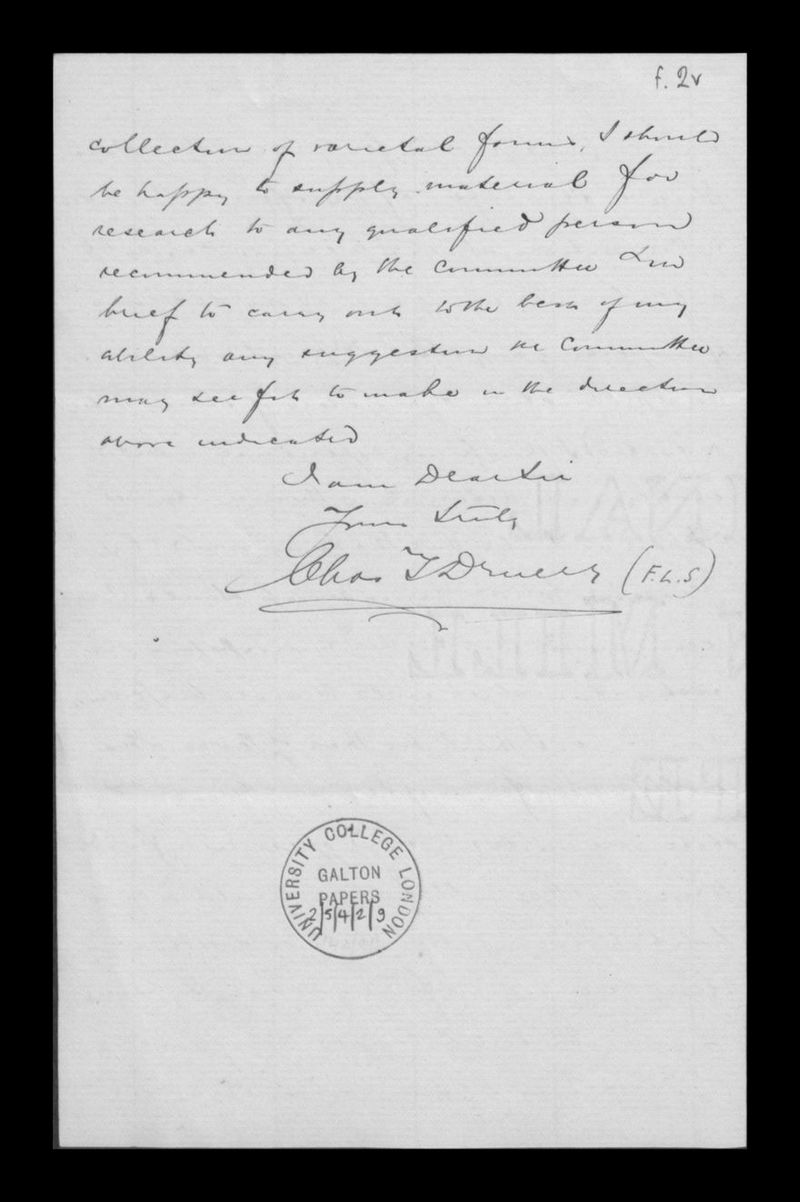 f. 2v
collection of varietal forms, I should
be happy to supply material for
research to any qualified person
recommended by the Committee & in
brief to carry out to the best of my
ability any suggestion the Committee
may see fit to make in the direction
above indicated
I am Dear Sir
Yours truly
Chas T Druery (F.L.S)
UNIVERSITY COLLEGE LONDON
GALTON
PAPERS
2/5/4/2/9